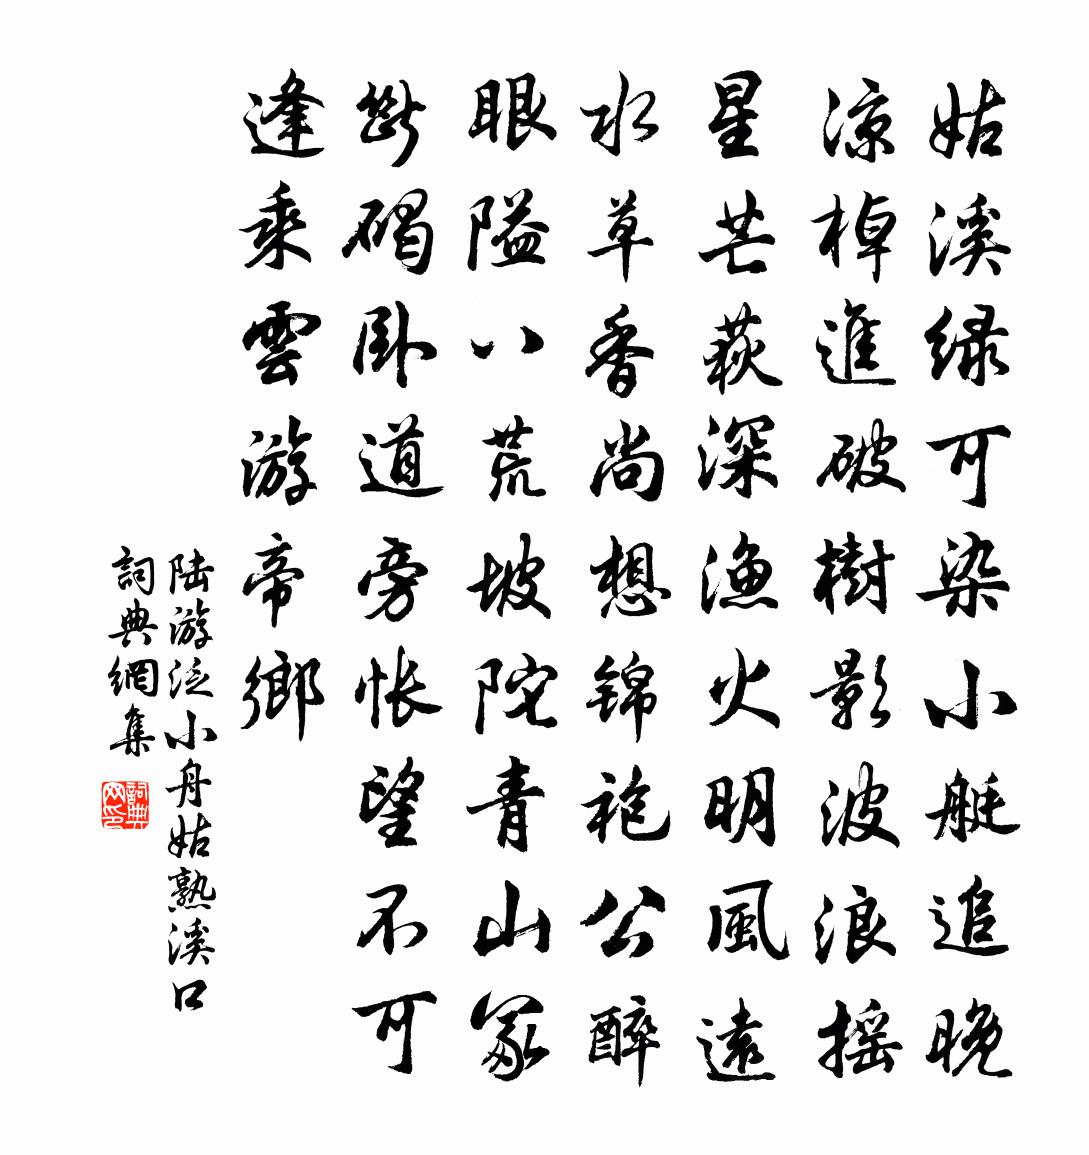 姑溪绿可染小艇追晚
涼棹進破樹影波浪摇
星芒荻深漁火明風遠
水草香尚想锦袍公醉
眼隘八荒坡陀青山冢
斷碣卧道旁怅望不可
逢乘雲游帝鄉
陆游泛小舟姑熟溪口
詞典網集
詞典网印